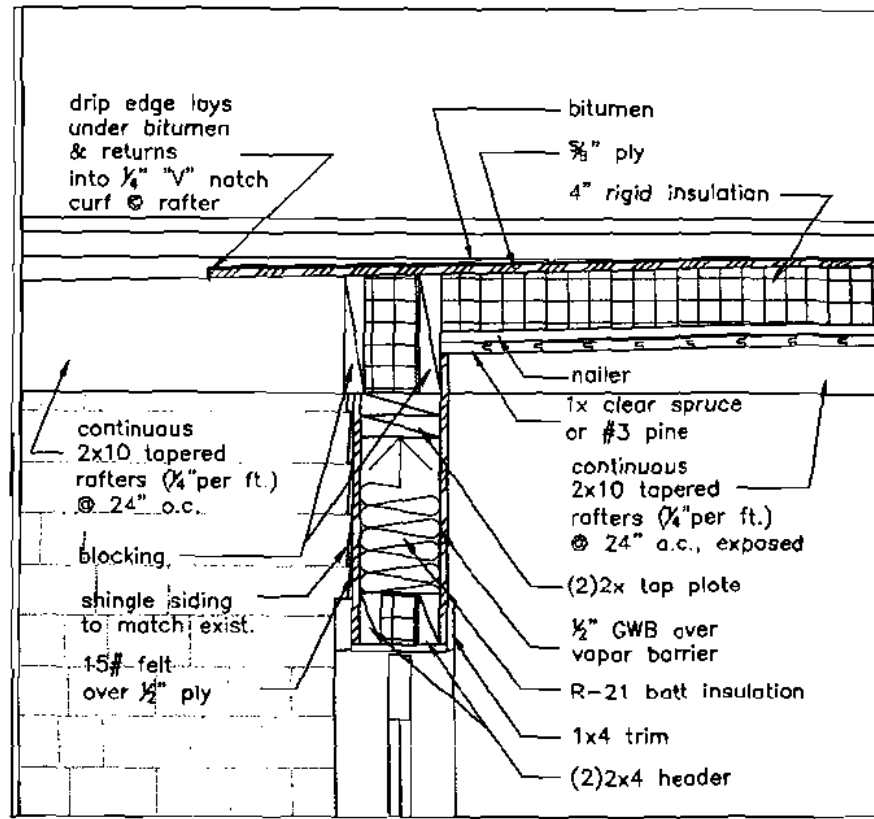 drip edge lays
under bitumen
& returns
into ¼" "V" notch
curf @ rafter
bitumen
⅝" ply
4" rigid insulation
nailer
1x clear spruce
or #3 pine
continuous
2x10 tapered
rafters (¼"per ft.)
@ 24" o.c.
continuous
2x10 tapered
rafters (¼"per ft.)
@ 24" o.c., exposed
blocking
shingle siding
to match exist.
15# felt
over ½" ply
(2)2x top plate
½" GWB over
vapor barrier
R-21 batt insulation
1x4 trim
(2)2x4 header